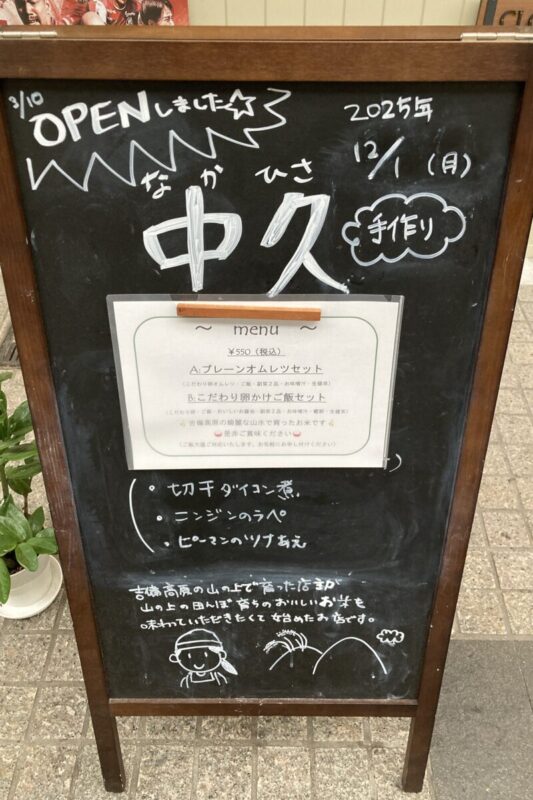 3/10
OPENしました☆
2025年
12/1 (月)
なか ひさ
中久
手作り
～ menu ～
¥550（税込）
A:プレーンオムレツセット
（こだわり卵オムレツ・ご飯・副菜2品・お味噌汁・生姜煮）
B:こだわり卵かけご飯セット
吉備高原の綺麗な山水で育ったお米です
是非ご賞味ください
（ご飯大盛ご対応いたします。お気軽にお申し付けください）
・切干ダイコン煮
・ニンジンのラペ
・ピーマンのツナあえ
吉備高原の山の上で育った店主が
山の上の田んぼ育ちのおいしいお米も
味わっていただきたくて始めたお店です。